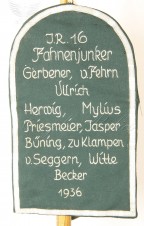 J.R. 16
Fahnenjunker
Gerbener, v. Fehrn
Üllrich
Herwig, Mylius
Priesmeier, Jasper
Büning, zu Klampen
v. Seggern, Witte
Becker
1936